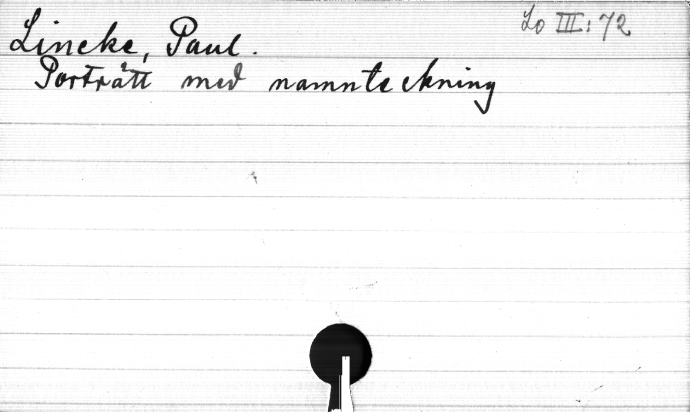 Lo III:72
Lincke, Paul.
Porträtt med namnteckning